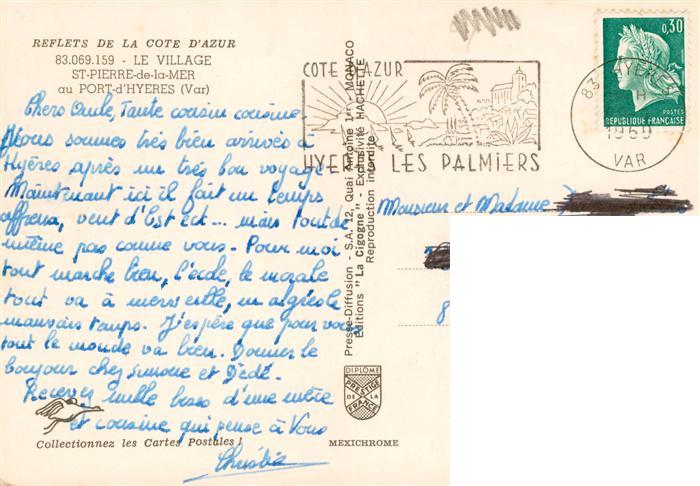 REFLETS DE LA COTE D'AZUR
83.069.159 - LE VILLAGE
ST-PIERRE-de-la-MER
au PORT-d'HYERES (Var)
Chers Oncle, Tante cousin cousine
Nous sommes très bien arrivés à
Hyères après un très bon voyage
Maintenant ici il fait un temps
affreux, vent d'Est ect... mais tout de
même pas comme vous. Pour moi
tout marche bien, l'école, le morale
tout va à merveille, malgré le
mauvais temps. J'espère que pour vous
tout le monde va bien. Donner le
bonjour chez Simone et Dédé.
Recevez mille bises d'une nièce
et cousine qui pense à Vous
Collectionnez les Cartes Postales !
MEXICHROME
Presse-Diffusion - S.A. 12, Quai Antoine 1er MONACO
Editions "La Cigogne" - Exclusivité HACHETTE
Reproduction Interdite
DIPLOME
PRESTIGE
DE LA
FRANCE
COTE D'AZUR
HYERES LES PALMIERS
0,30
POSTES
REPUBLIQUE FRANÇAISE
83 HYERES
1969
VAR
Monsieur et Madame
8